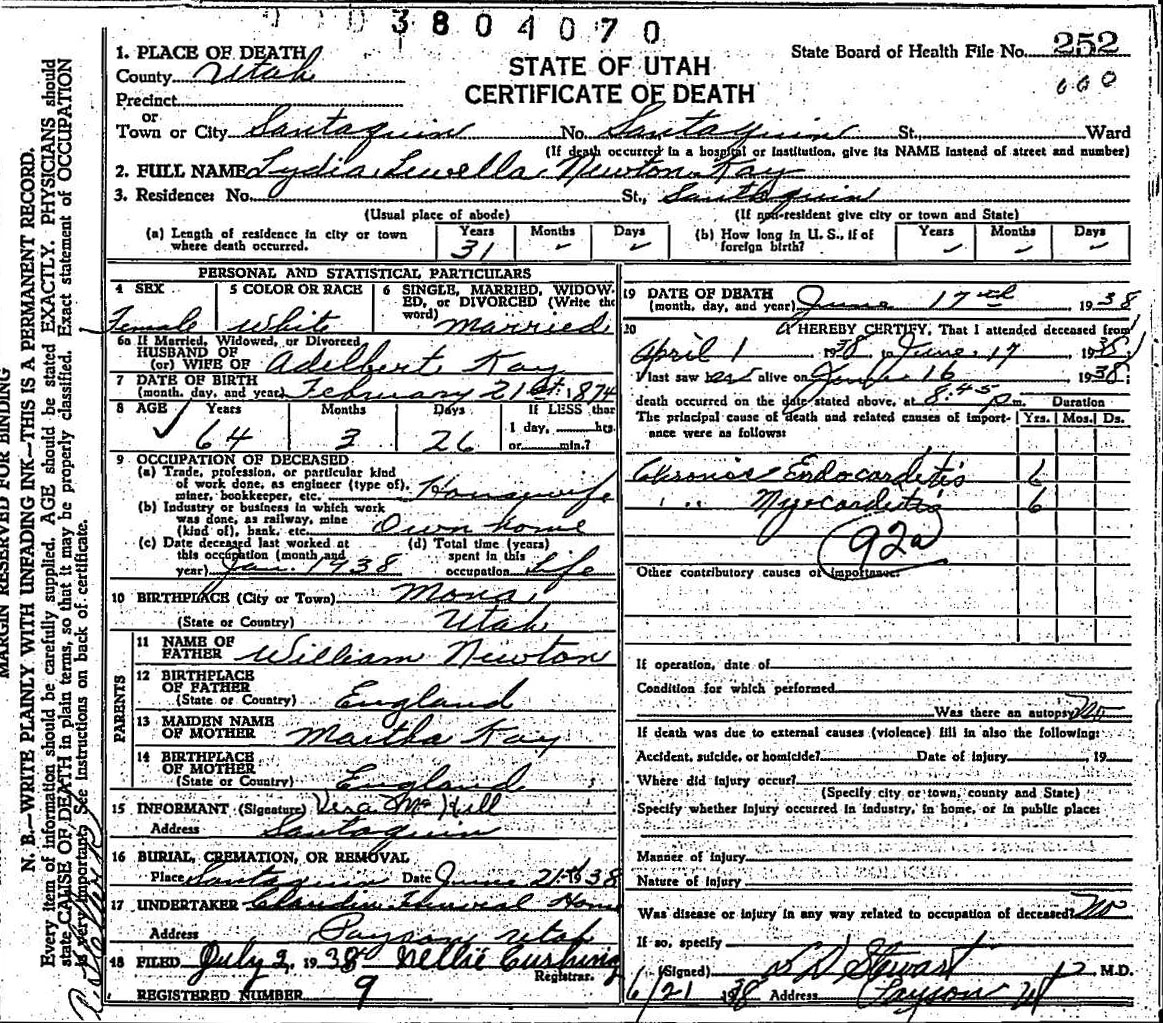 3804070
1. PLACE OF DEATH
County Utah
Precinct
or
Town or City Santaquin No. Santaquin St., Ward
STATE OF UTAH
CERTIFICATE OF DEATH
State Board of Health File No. 252
(If death occurred in a hospital or institution, give its NAME instead of street and number)
2. FULL NAME Lydia Lewella Newton Kay
3. Residence: No. St., Santaquin
(Usual place of abode) (If non-resident give city or town and State)
(a) Length of residence in city or town where death occurred. Years 31 Months - Days -
(b) How long in U. S., if of foreign birth? Years - Months - Days -
PERSONAL AND STATISTICAL PARTICULARS
4 SEX
Female
5 COLOR OR RACE
White
6 SINGLE, MARRIED, WIDOW-
ED, or DIVORCED (Write the
word) Married
6a If Married, Widowed, or Divorced
HUSBAND OF
(or) WIFE OF Adelbert Kay
7 DATE OF BIRTH
(month, day, and year) February 21st 1874
8 AGE Years Months Days If LESS than
64 3 26 1 day, hrs.
or min.?
9 OCCUPATION OF DECEASED
(a) Trade, profession, or particular kind
of work done, as engineer (type of),
miner, bookkeeper, etc. Housewife
(b) Industry or business in which work
was done, as railway, mine
(kind of), bank, etc. Own home
(c) Date deceased last worked at
this occupation (month and
year) Jan. 1938
(d) Total time (years)
spent in this
occupation Life
10 BIRTHPLACE (City or Town) Mona,
(State or Country) Utah
PARENTS
11 NAME OF
FATHER William Newton
12 BIRTHPLACE
OF FATHER
(State or Country) England
13 MAIDEN NAME
OF MOTHER Martha Kay
14 BIRTHPLACE
OF MOTHER
(State or Country) England
15 INFORMANT (Signature) Vera Mc Kill
Address Santaquin
16 BURIAL, CREMATION, OR REMOVAL
Place Santaquin Date June 21st 1938
17 UNDERTAKER Claudin Funeral Home
Address Payson Utah
18 FILED July 2, 1938 Nellie Cushing
Registrar.
REGISTERED NUMBER 9
19 DATE OF DEATH
(month, day, and year) June 17th 1938
20 I HEREBY CERTIFY, That I attended deceased from
April 1 1938, to June 17 1938.
I last saw her alive on June 16 1938.
death occurred on the date stated above, at 8.45 p m.
The principal cause of death and related causes of import-
ance were as follows:
Duration
Yrs. Mos. Ds.
Chronic Endocarditis 6
" " Myocarditis 6
92a
Other contributory causes of importance:
If operation, date of
Condition for which performed
Was there an autopsy No
If death was due to external causes (violence) fill in also the following:
Accident, suicide, or homicide? Date of injury 19
Where did injury occur?
(Specify city or town, county and State)
Specify whether injury occurred in industry, in home, or in public place:
Manner of injury
Nature of injury
Was disease or injury in any way related to occupation of deceased? No
If so, specify
(Signed) L D Stewart M.D.
6/21 1938 Address Payson Ut
MARGIN RESERVED FOR BINDING
N. B.—WRITE PLAINLY WITH UNFADING INK—THIS IS A PERMANENT RECORD.
Every item of information should be carefully supplied. AGE should be stated EXACTLY. PHYSICIANS should
state CAUSE OF DEATH in plain terms, so that it may be properly classified. Exact statement of OCCUPATION
is very important. See instructions on back of certificate.